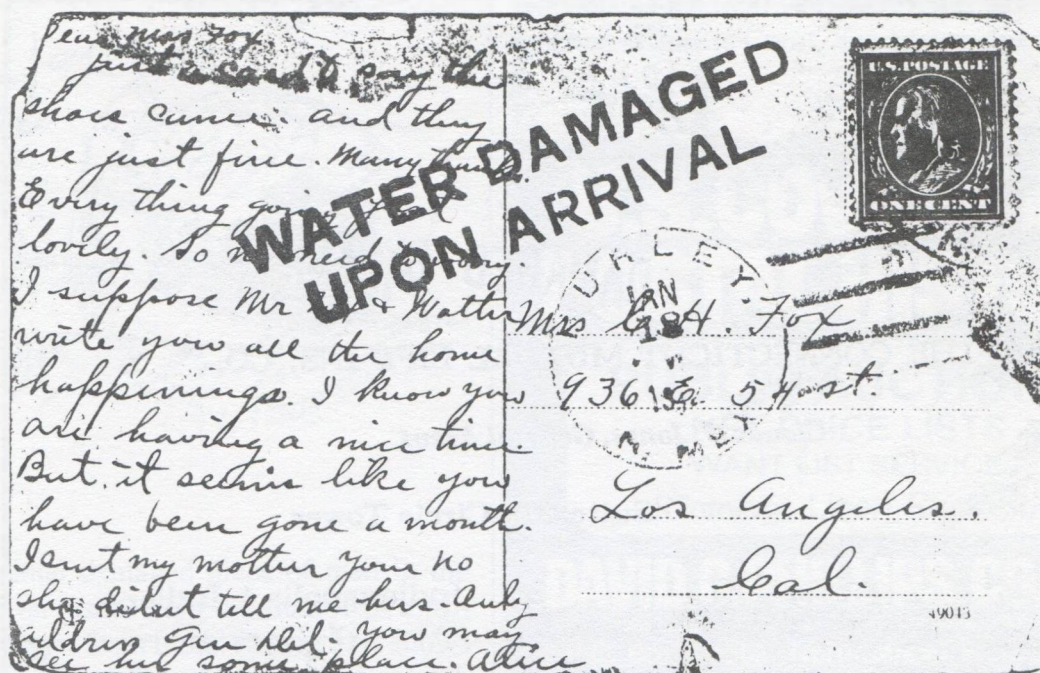 Dear Miss Fox
just a card to say the
shoes came. and they
are just fine. Many
Every thing going
lovely. So no need
I suppose Mr & Walter
write you all the home
happinings. I know you
are having a nice time
But it seems like you
have been gone a month.
I sent my mother your no
she didnt tell me hers. Only
address Gen Del. You may
see her some place. Alice
WATER DAMAGED
UPON ARRIVAL
U.S. POSTAGE
ONE CENT
HURLEY
JAN
18
N. MEX
Mrs C. H. Fox
936 E. 54 st.
Los Angeles.
Cal.
49043